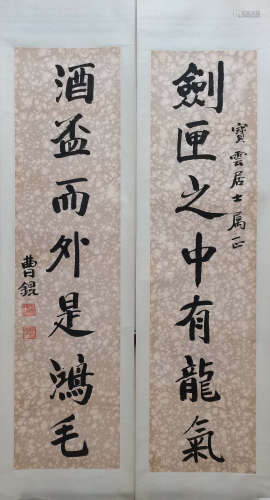 劍匣之中有龍氣
寶雲居士属正
酒盃而外是鴻毛
曹錕